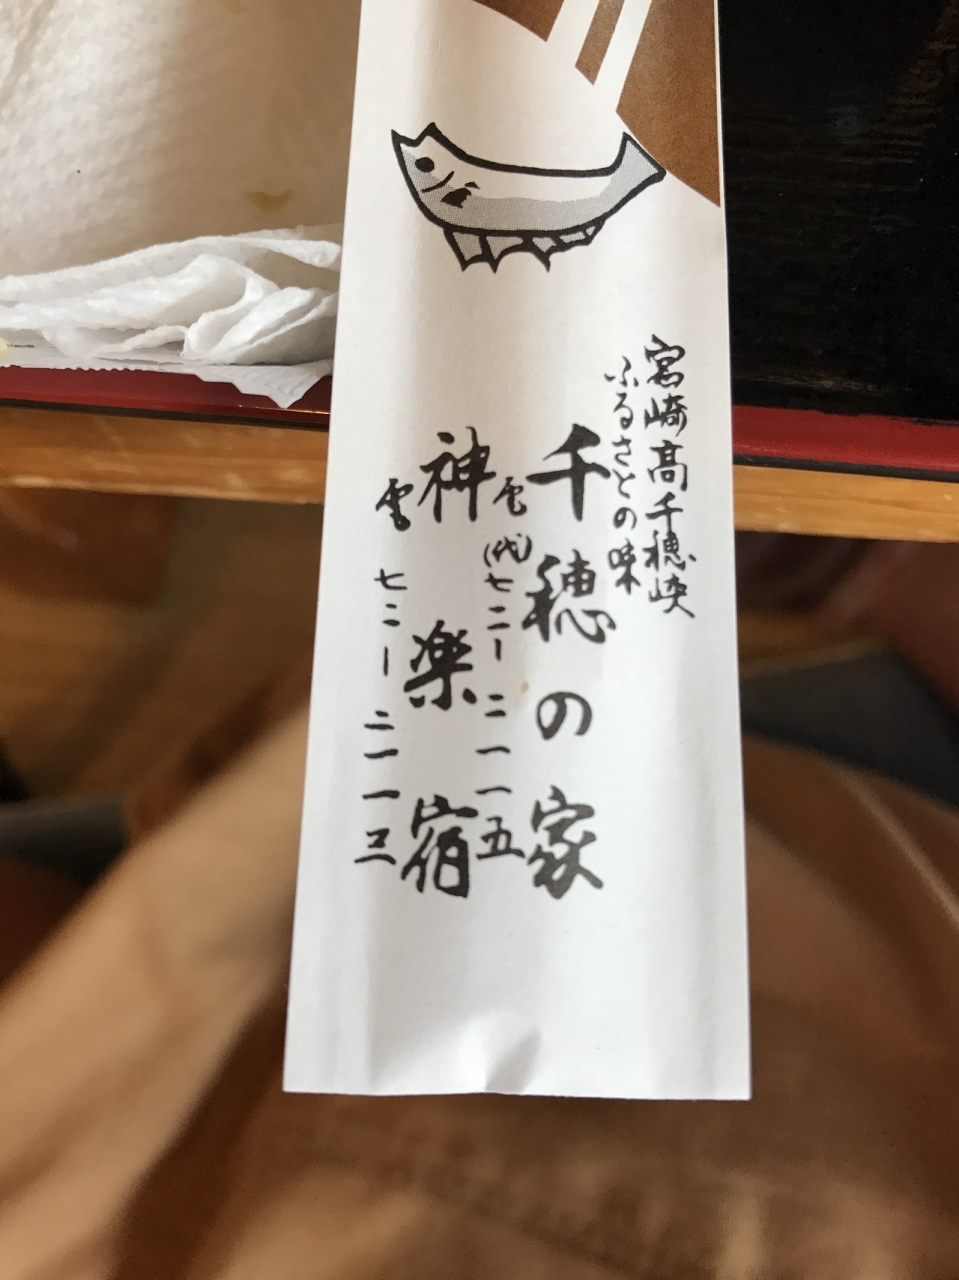 宮崎高千穂峡
ふるさとの味
千穂の家
電(代)七二ー二一一五
神楽宿
電七二ー二一一三